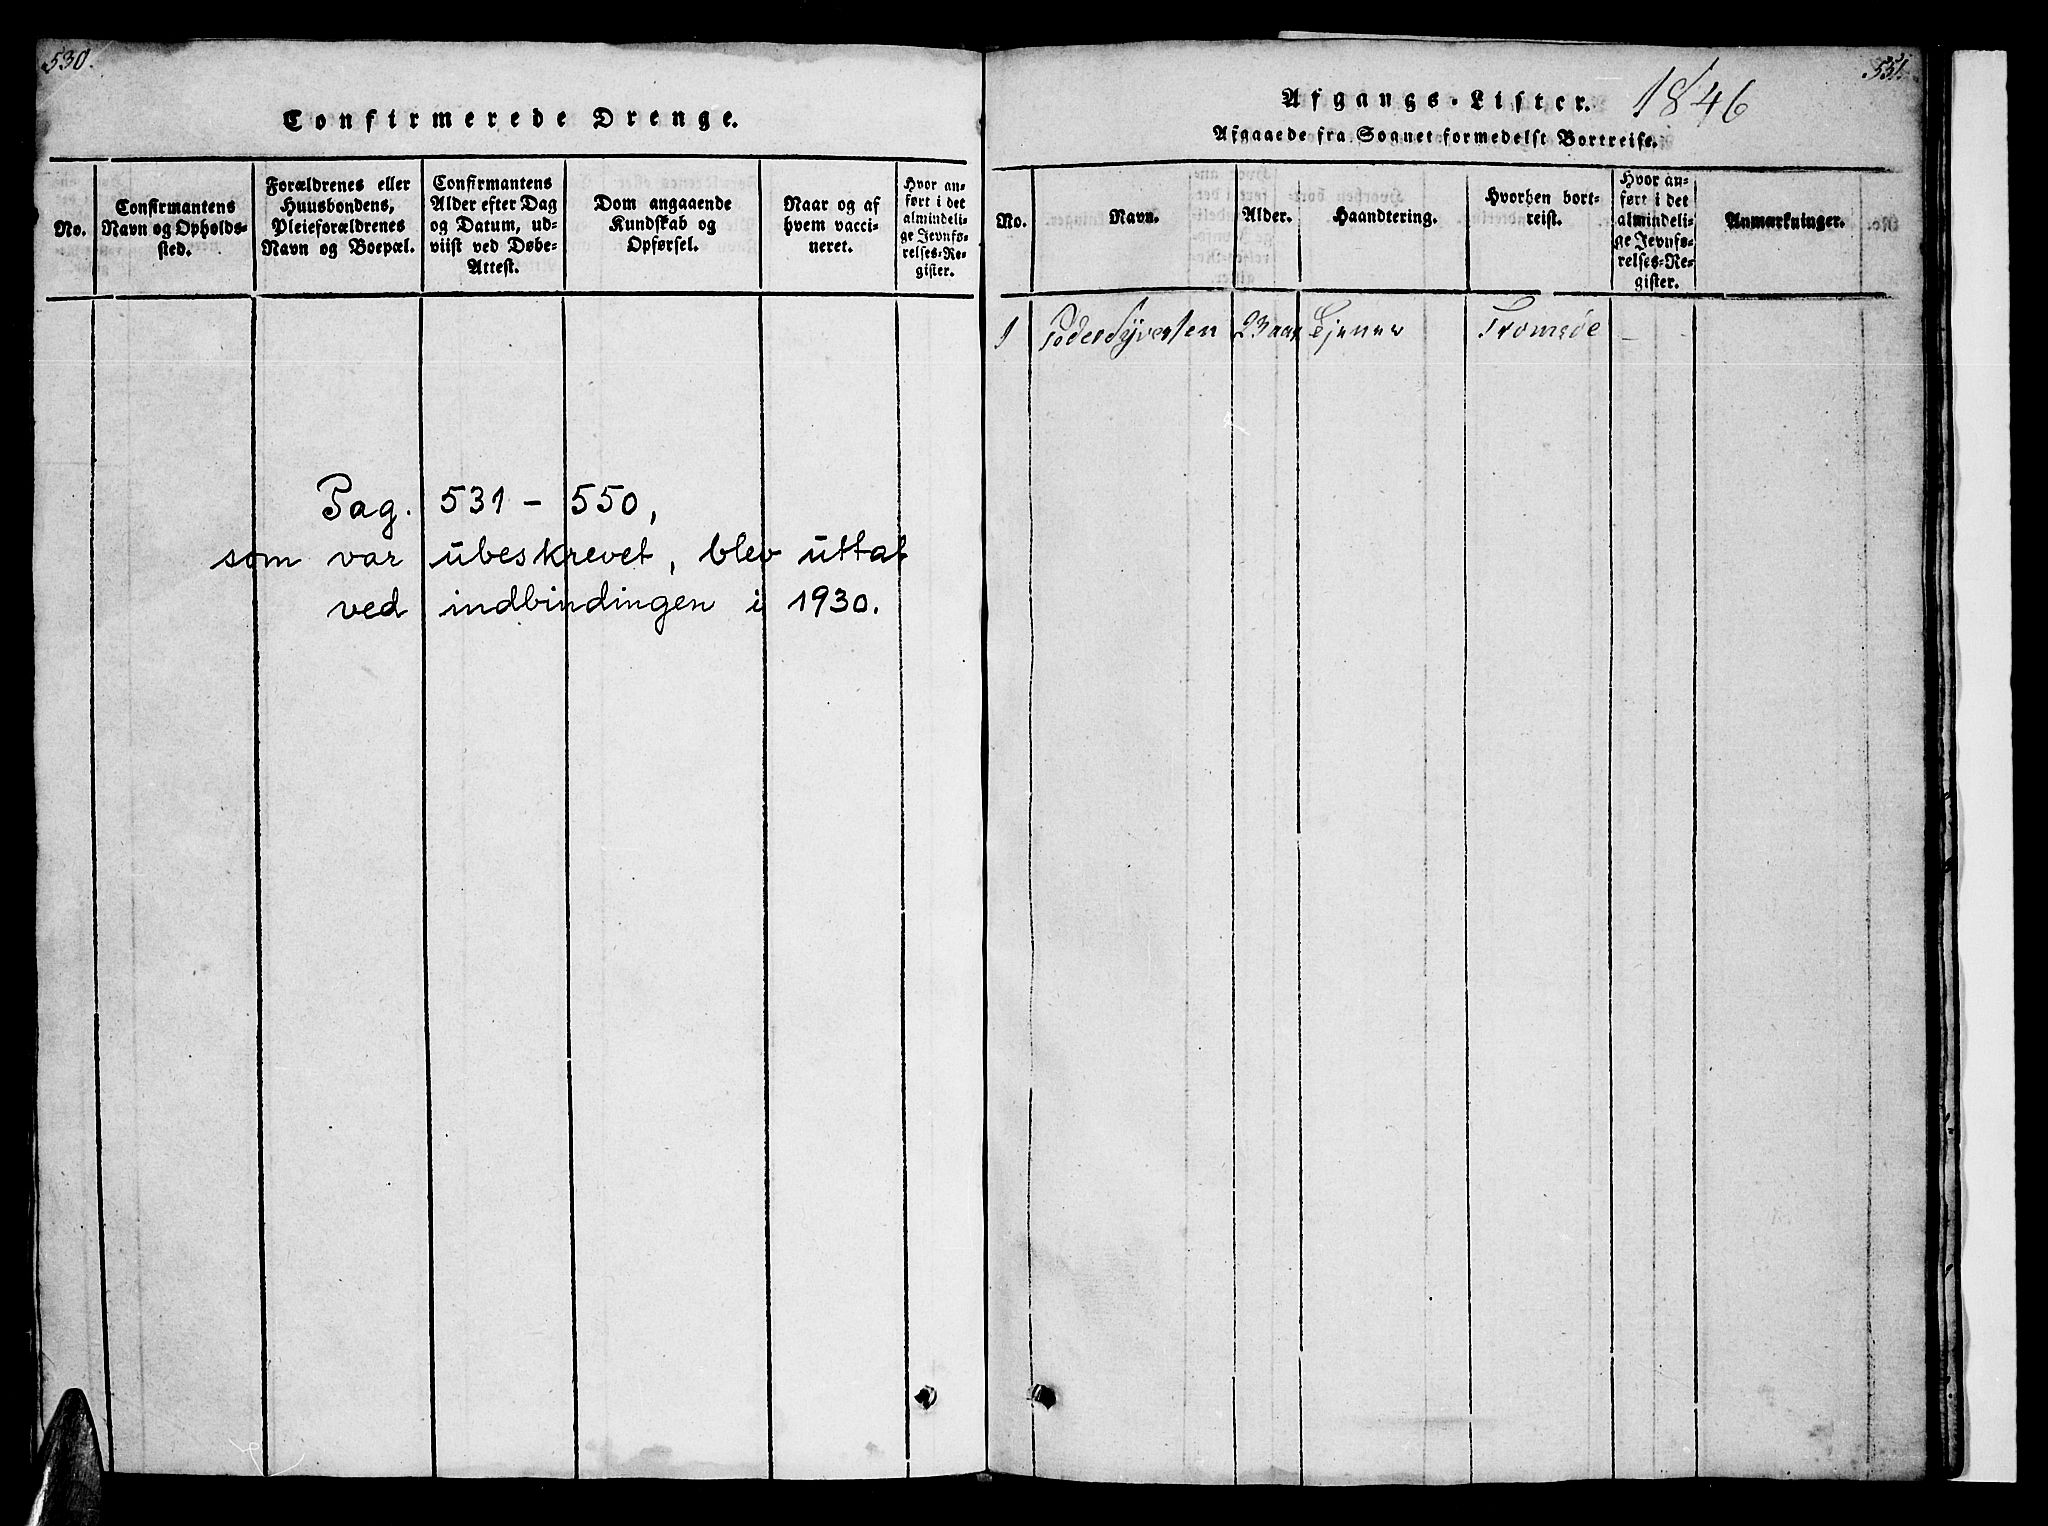 530.
Confirmerede Drenge.
No.
Confirmantens
Navn og Opholds-
sted.
Forældrenes eller
Huusbondens,
Pleieforældrenes
Navn og Boepæl.
Confirmantens
Alder efter Dag
og Datum, ud-
viist ved Døbe-
Attest.
Dom angaaende
Kundskab og
Opførsel.
Naar og af
hvem vacci-
neret.
Hvor an-
ført i det
almindeli-
ge Jevnfø-
relses-Re-
gister.
Pag. 531 - 550,
som var ubeskrevet, blev uttat
ved indbindingen i 1930.
551.
Afgangs-Lister. 1846
Afgaaede fra Sognet formedelst Bortreise.
No.
Navn.
Alder.
Haandtering.
Hvorhen bort-
reist.
Hvor an-
ført i det
almindeli-
ge Jevnfø-
relses-Re-
gister.
Anmærkninger.
1 Peder Syversen 23 aar Tjener Tromsøe -